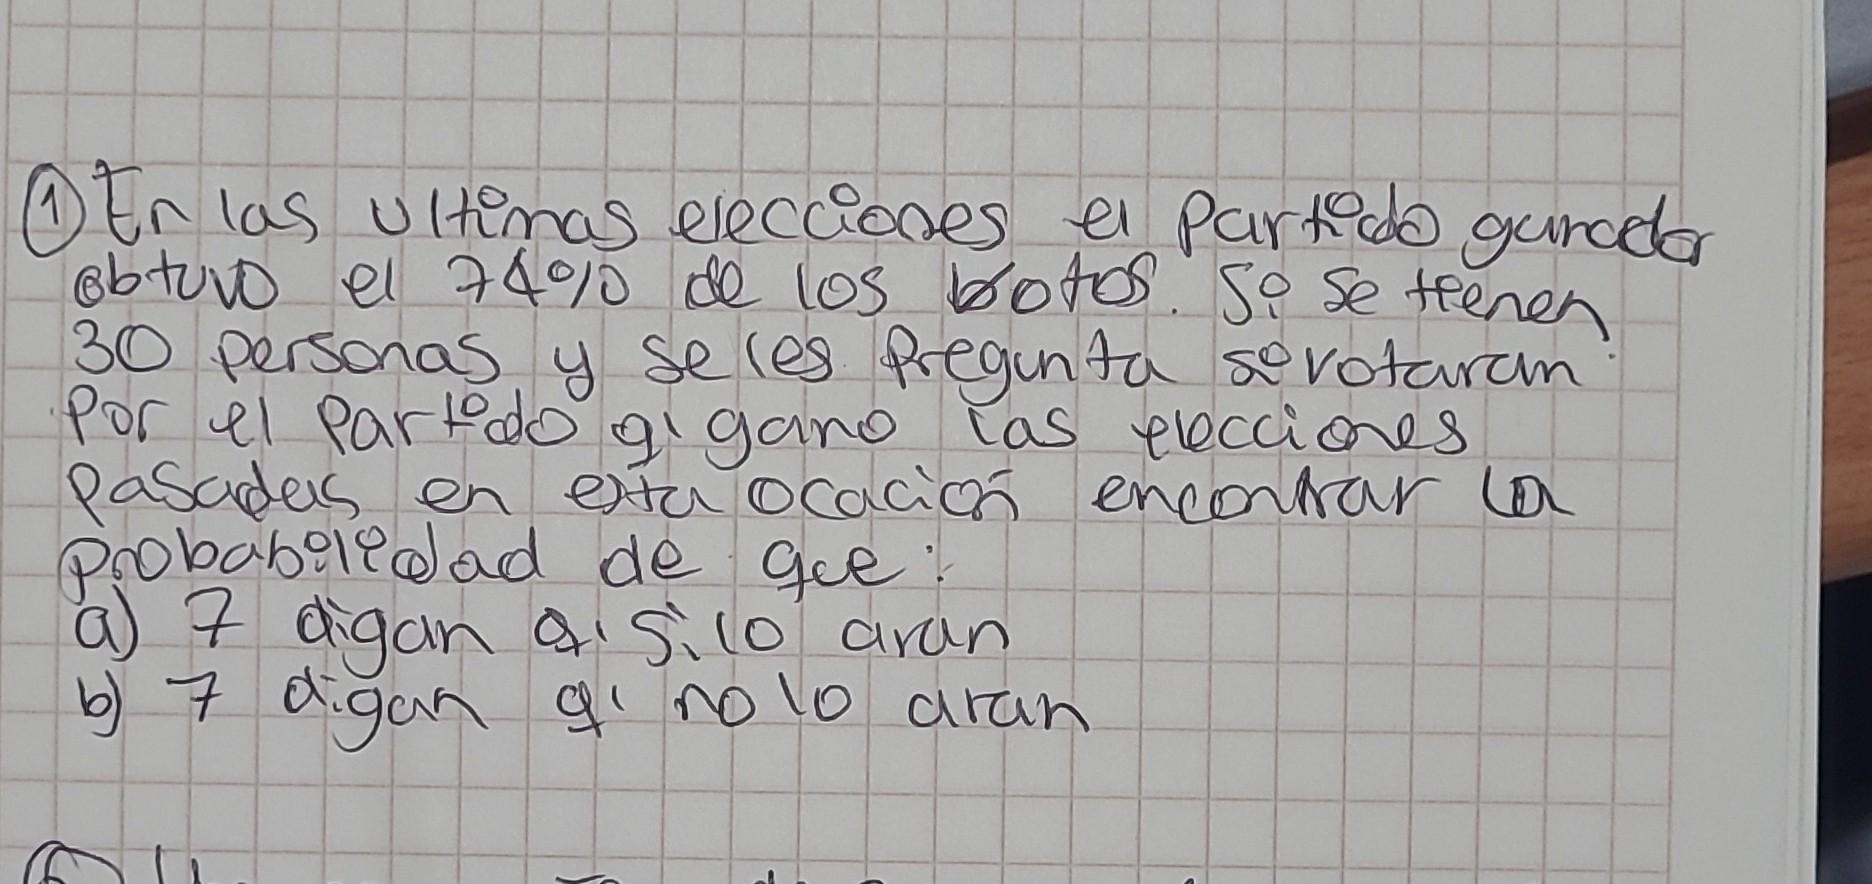 ① En las ultimas elecciones el partido ganador
obtuvo el 74% de los votos. Si se tienen
30 personas y se les pregunta si votaran
por el partido q' gano las elecciones
pasadas en esta ocación encontrar la
probabilidad de que:
a) 7 digan q' si lo aran
b) 7 digan q' no lo aran